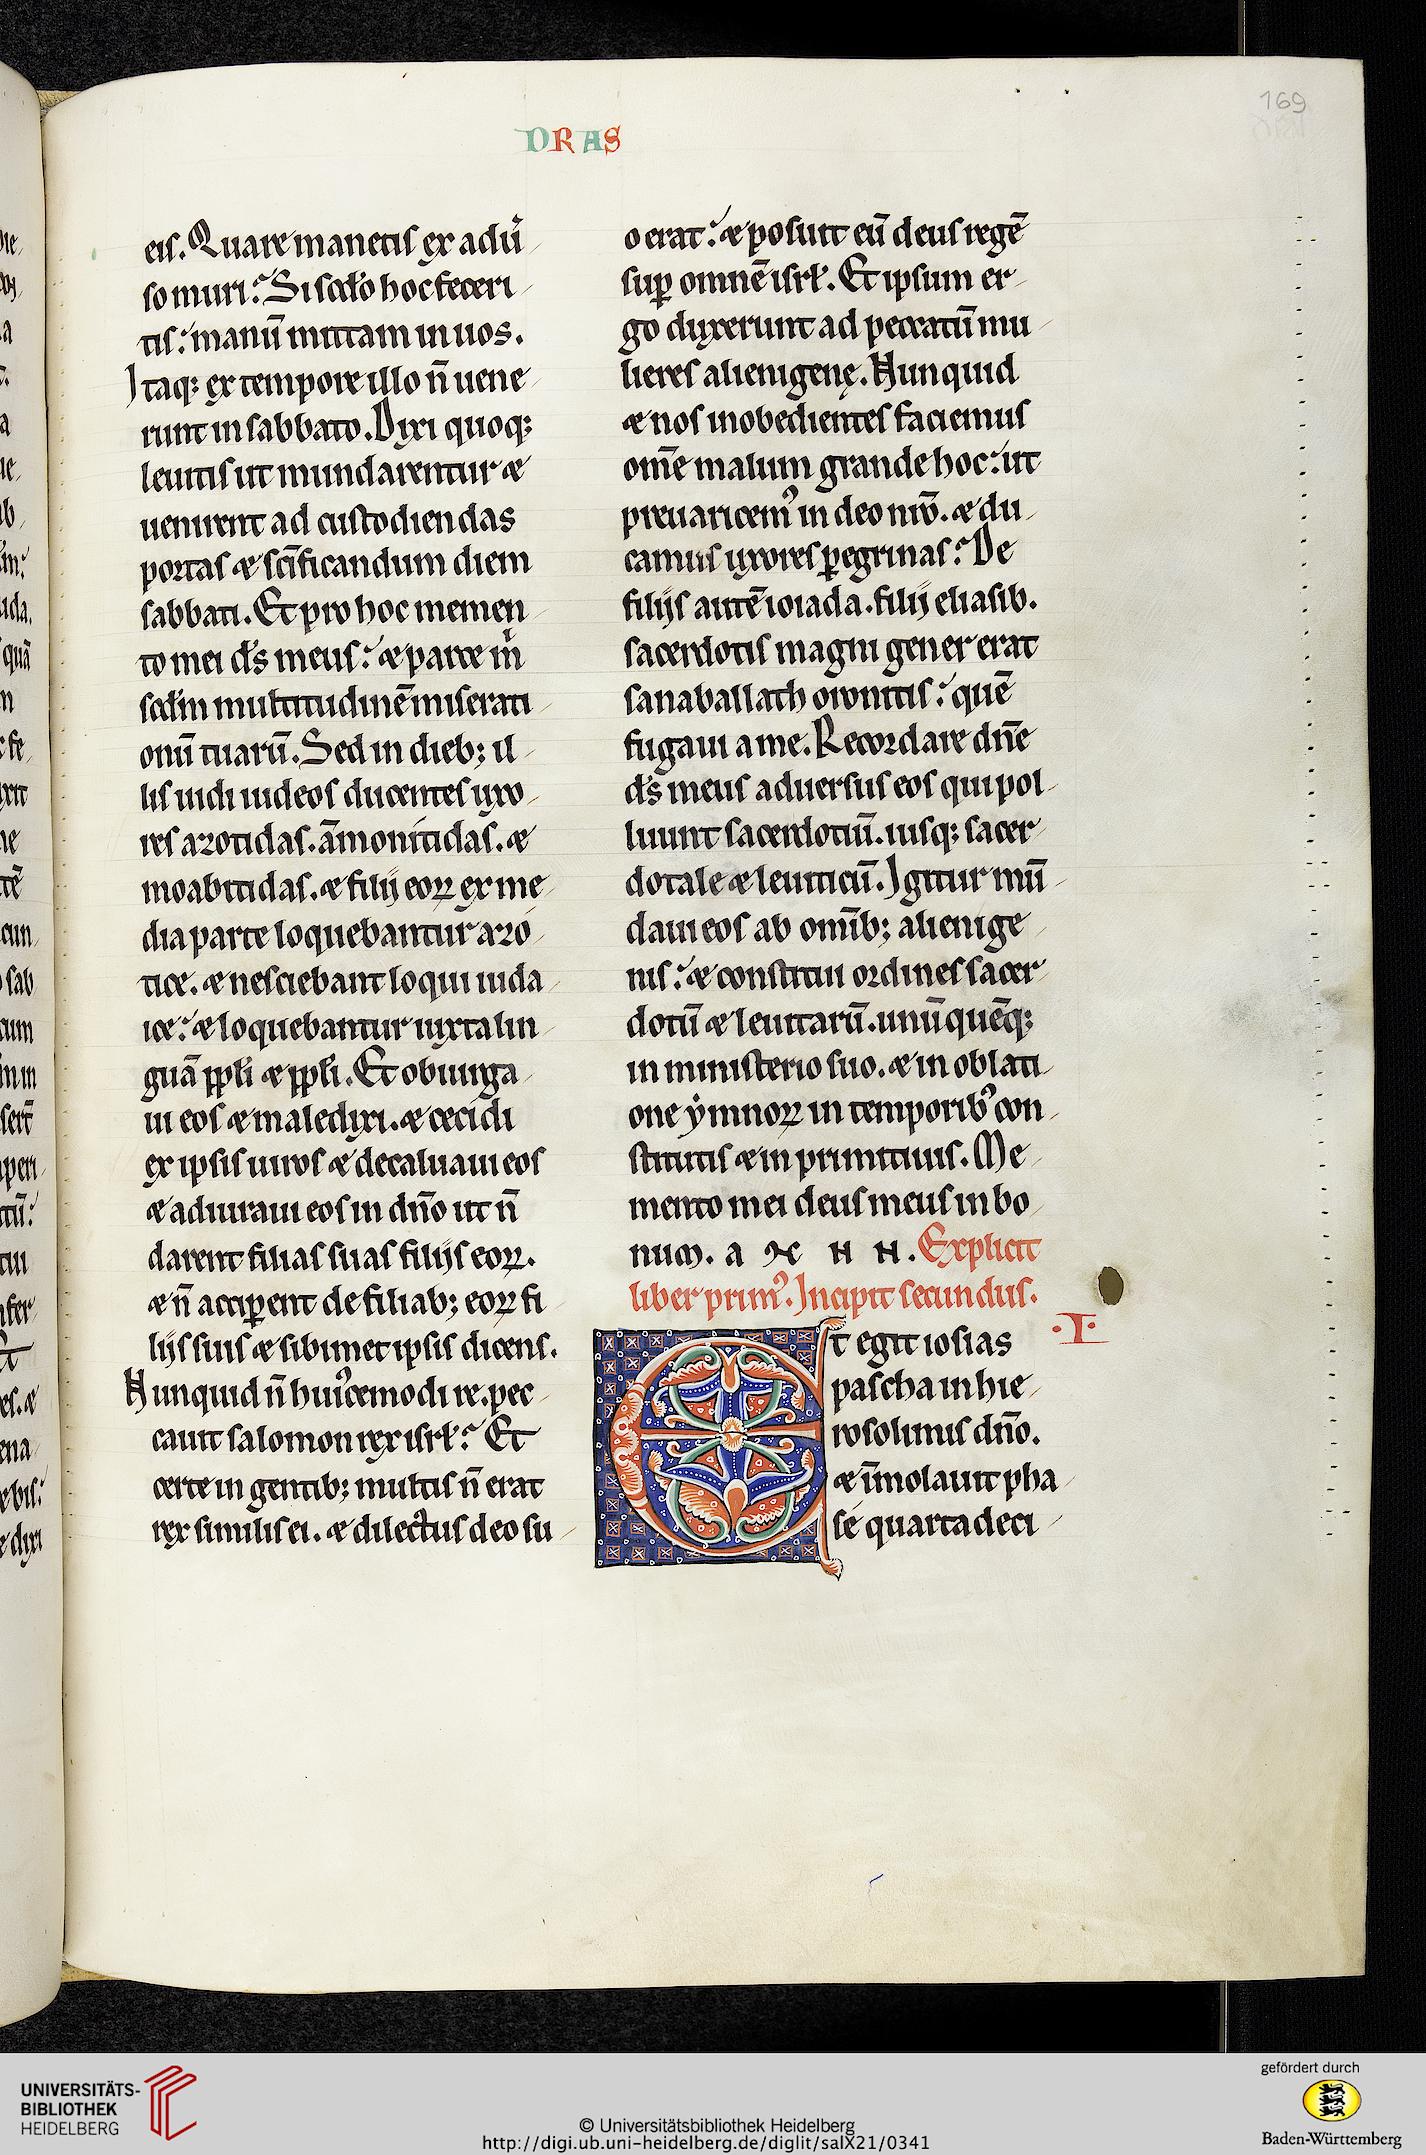 DRAS
169
eis. Quare manetis ex adũ
so muri? Si scd̃o hoc feceri
tis: manũ mittam in uos.
Itaq; ex tempore illo ñ uene
runt in sabbato. Dixi quoq;
leuitis ut mundarentur &
uenirent ad custodiendas
portas & sc̃ificandum diem
sabbati. Et pro hoc memen
to mei d̃s meus: & parce m̃
scd̃m multitudinẽ miserati
onũ tuarũ. Sed in dieb; il
lis uidi iudeos ducentes uxo
res azotidas. ãmonitidas. &
moabitidas. & filij eoꝝ ex me
dia parte loquebantur azo
tice. & nesciebant loqui iuda
ice: & loquebantur iuxta lin
guã ppl̃i & ppl̃i. Et obiurga
ui eos & maledixi. & cecidi
ex ipsis uiros & decaluaui eos
& adiuraui eos in dño ut ñ
darent filias suas filijs eoꝝ.
& ñ acciꝑent de filiab; eoꝝ fi
lijs suis & sibimet ipsis dicens.
Nunquid ñ huiꝰcemodi re.pec
cauit salomon rex isrł? Et
certe in gentib; multis ñ erat
rex similis ei. & dilectus deo su
o erat: & posuit eũ deus regẽ
suꝑ omnẽ isrł. Et ipsum er
go duxerunt ad peccatũ mu
lieres alienigenę. Nunquid
& nos inobedientes faciemus
om̃e malum grande hoc: ut
preuaricemꝰ in deo nr̃o. & du
camus uxores ꝑegrinas? De
filijs autẽ ioiada. filij eliasib.
sacerdotis magni gener erat
sanaballath oronitis: quẽ
fugaui a me. Recordare dñe
d̃s meus aduersus eos qui pol
luunt sacerdotiũ. iusq; sacer
dotale & leuiticũ. Igitur mũ
daui eos ab omĩb; alienige
nis: & constitui ordines sacer
dotũ & leuitarũ. unũquẽq;
in ministerio suo. & in oblati
one ymnoꝝ in temporibꝰ con
stitutis & in primitiuis. Me
mento mei deus meus in bo
num. a m e n. Explicit
liber primꝰ. Incipit secundus.
Et egit iosias
.I.
pascha in hie
rosolimis dño.
& ĩmolauit pha
se quartadeci
UNIVERSITÄTS-
BIBLIOTHEK
HEIDELBERG
© Universitätsbibliothek Heidelberg
http://digi.ub.uni-heidelberg.de/diglit/salX21/0341
gefördert durch
Baden-Württemberg